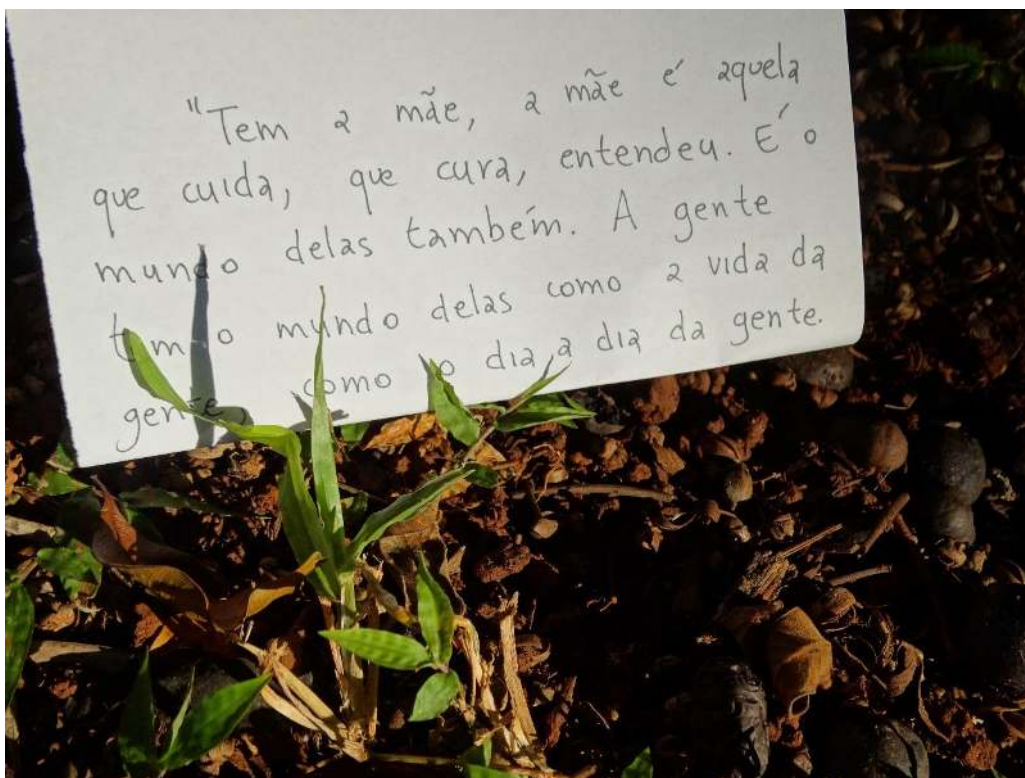 "Tem a mãe, a mãe é aquela
que cuida, que cura, entendeu. É o
mundo delas também. A gente
tem o mundo delas como a vida da
gente, como o dia a dia da gente.